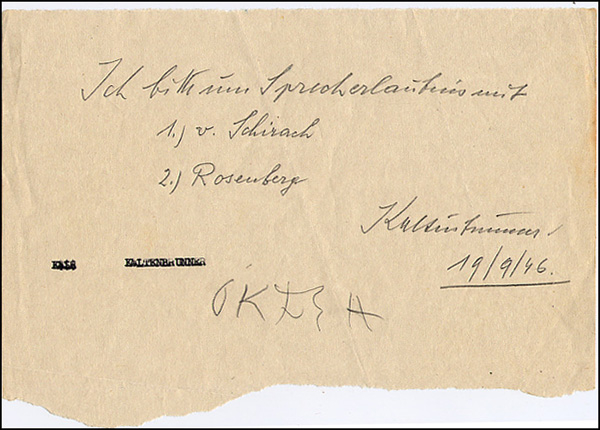 Ich bitte um Sprecherlaubnis mit
1.) v. Schirach
2.) Rosenberg
Kaltenbrunner
19/9/46.
KALTENBRUNNER
OK